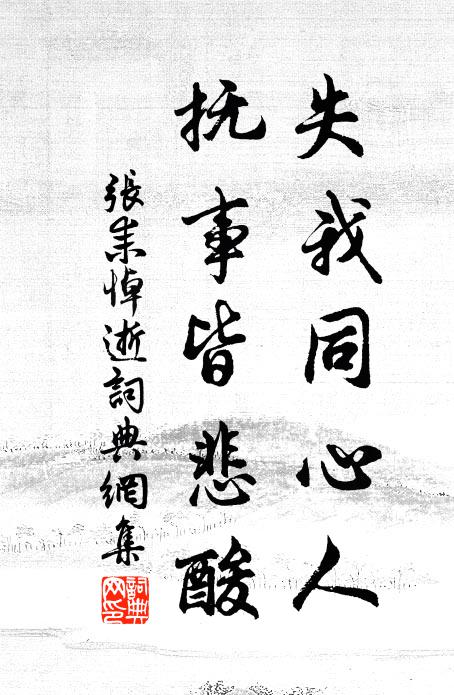 失我同心人
抚事皆悲酸
張耒悼逝詞典網集
詞典網印